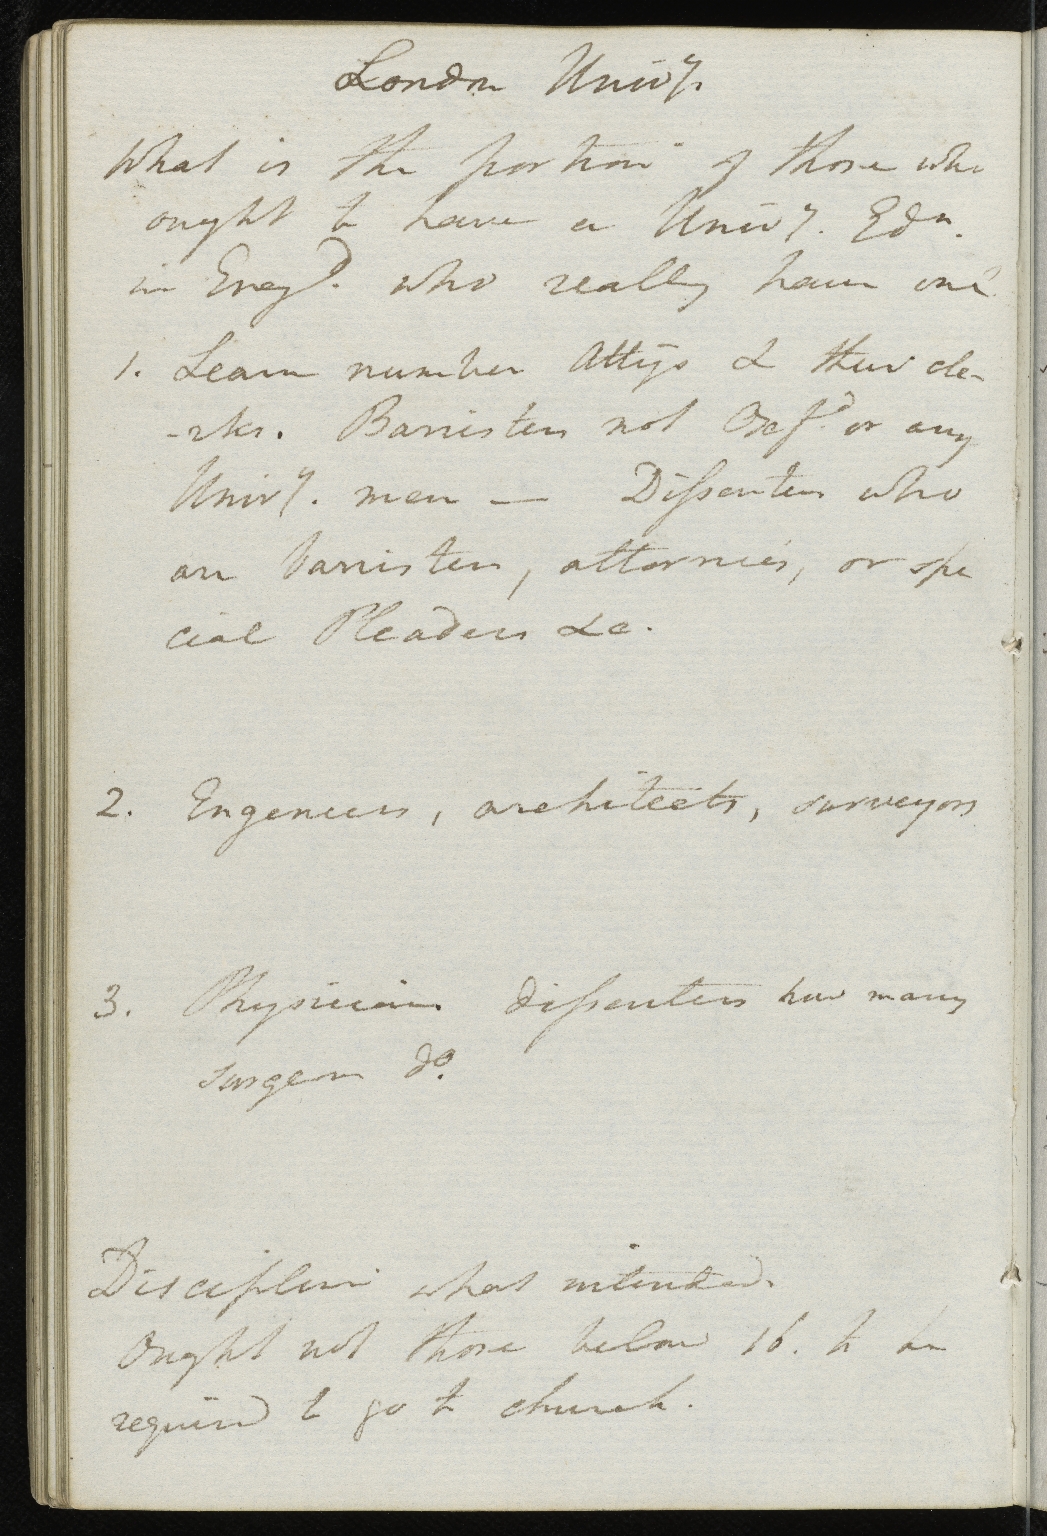 London Univy.
What is the portion of those who
ought to have a Univy. Edn.
in Engd. who really have one
1. Learn number Attys & their cle-
-rks. Barristers not Oxfd. or any
Univy. men — Dissenters who
are barristers, attornies, or spe
cial Pleaders &c.
2. Engeneers, architects, surveyors
3. Physicians dissenters how many
surgeon do.
Discipline what intended.
Ought not those below 16. to be
required to go to church.